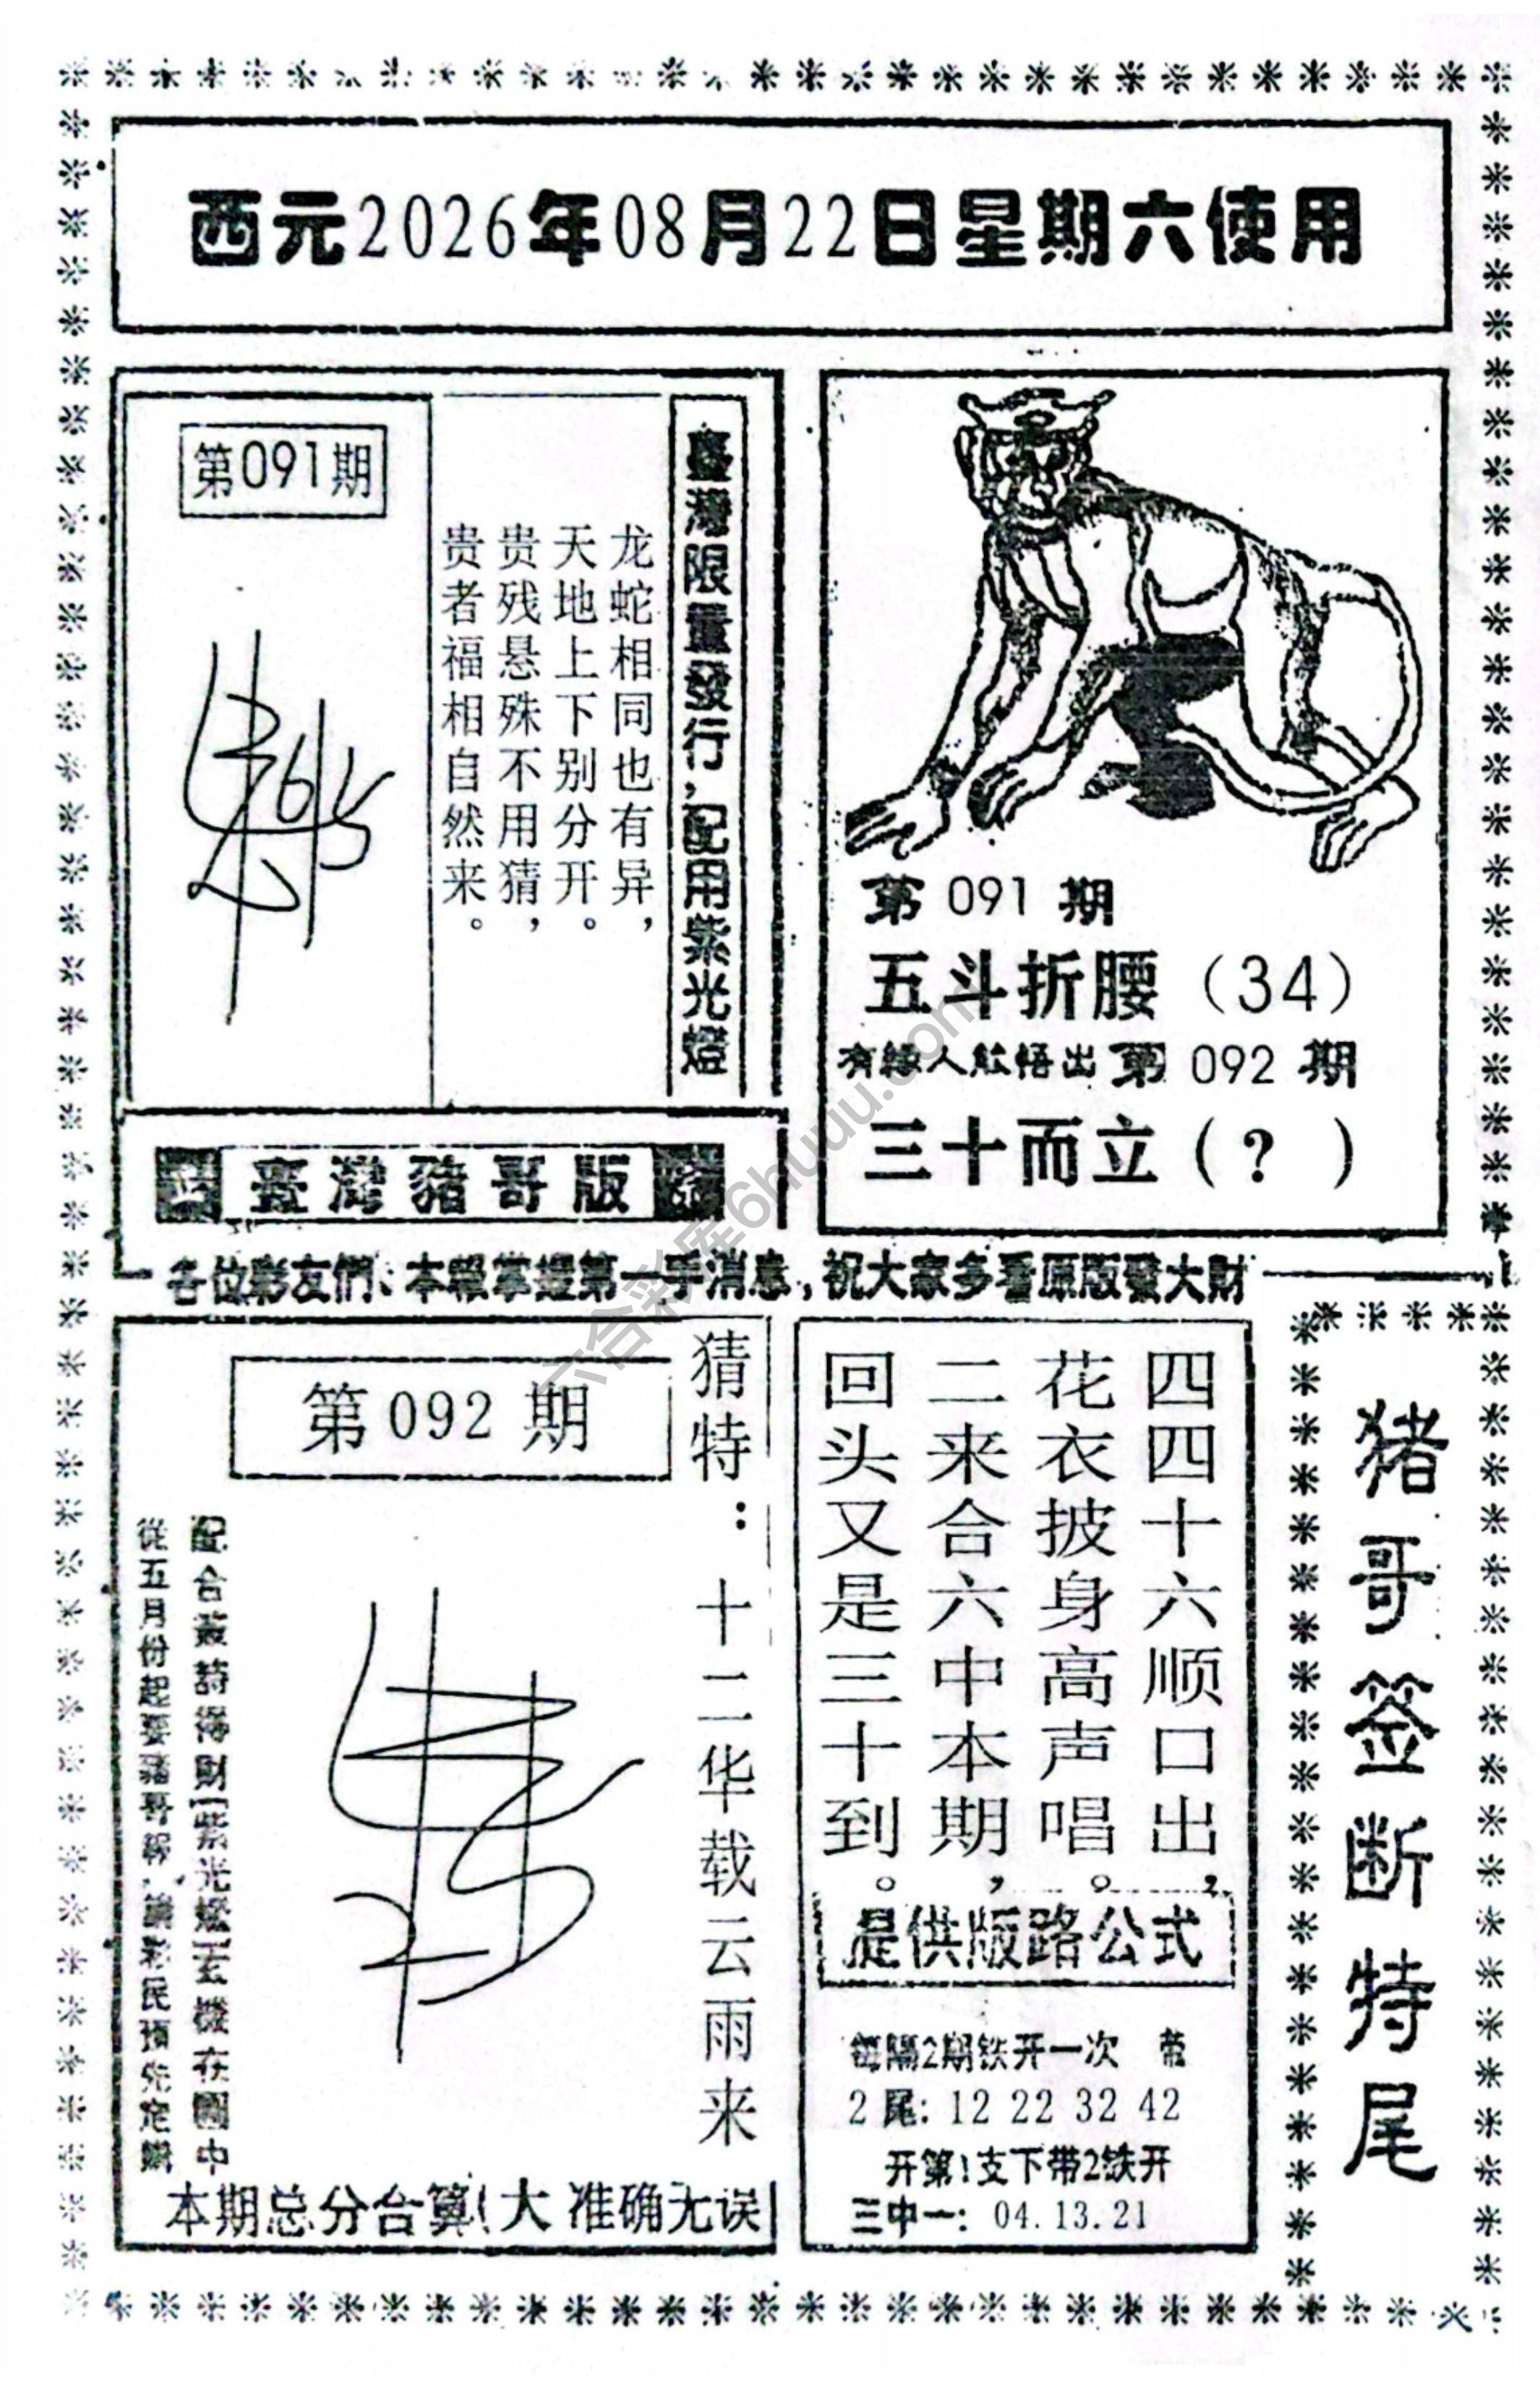 西元2026年08月22日星期六使用
第091期
臺灣限量發行，配用紫光燈
龙蛇相同也有异，
天地上下别分开。
贵残悬殊不用猜，
贵者福相自然来。
第 091 期
五斗折腰（34）
有緣人能悟出 第 092 期
三十而立（？）
臺灣豬哥版
各位彩友們、本報掌握第一手消息，祝大家多看原版發大財
第092期
猜特：十二华载云雨来
從五月份起要豬哥報，請彩民預先定購
本期总分合算(大 准确无误
四四十六顺口出，
花衣披身高声唱。
二来合六中本期，
回头又是三十到。
提供版路公式
每隔2期铁开一次 带
2尾：12 22 32 42
开第1支下带2铁开
三中一：04.13.21
猪哥签断特尾
六合彩库6huuu.com